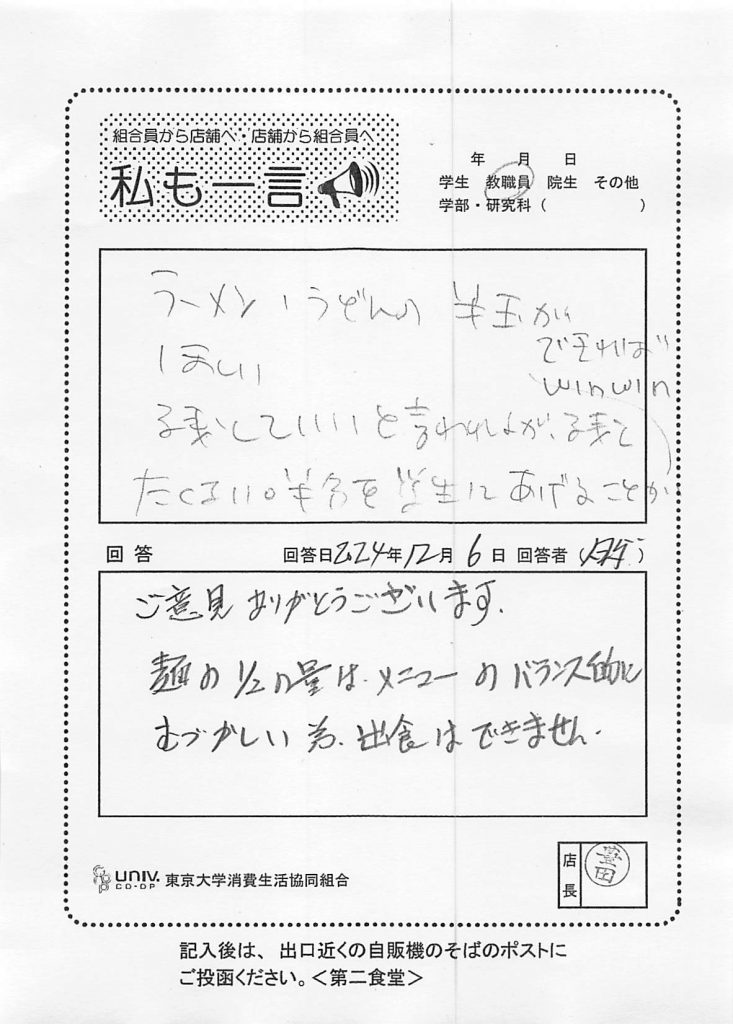 組合員から店舗へ・店舗から組合員へ
私も一言
年 月 日
学生 教職員 院生 その他
学部・研究科( )
ラーメン、うどんの 半玉が
ほしい
残していいと言われるが、残し
たくない。半分を学生にあげることが
できれば
winwin
回答 回答日2024年12月6日 回答者( )
ご意見ありがとうございます。
麺の1/2の量は、メニューのバランス的に
むづかしい為、出食はできません。
UNIV.
CO-OP
東京大学消費生活協同組合
店長
豊田
記入後は、出口近くの自販機のそばのポストに
ご投函ください。<第二食堂>